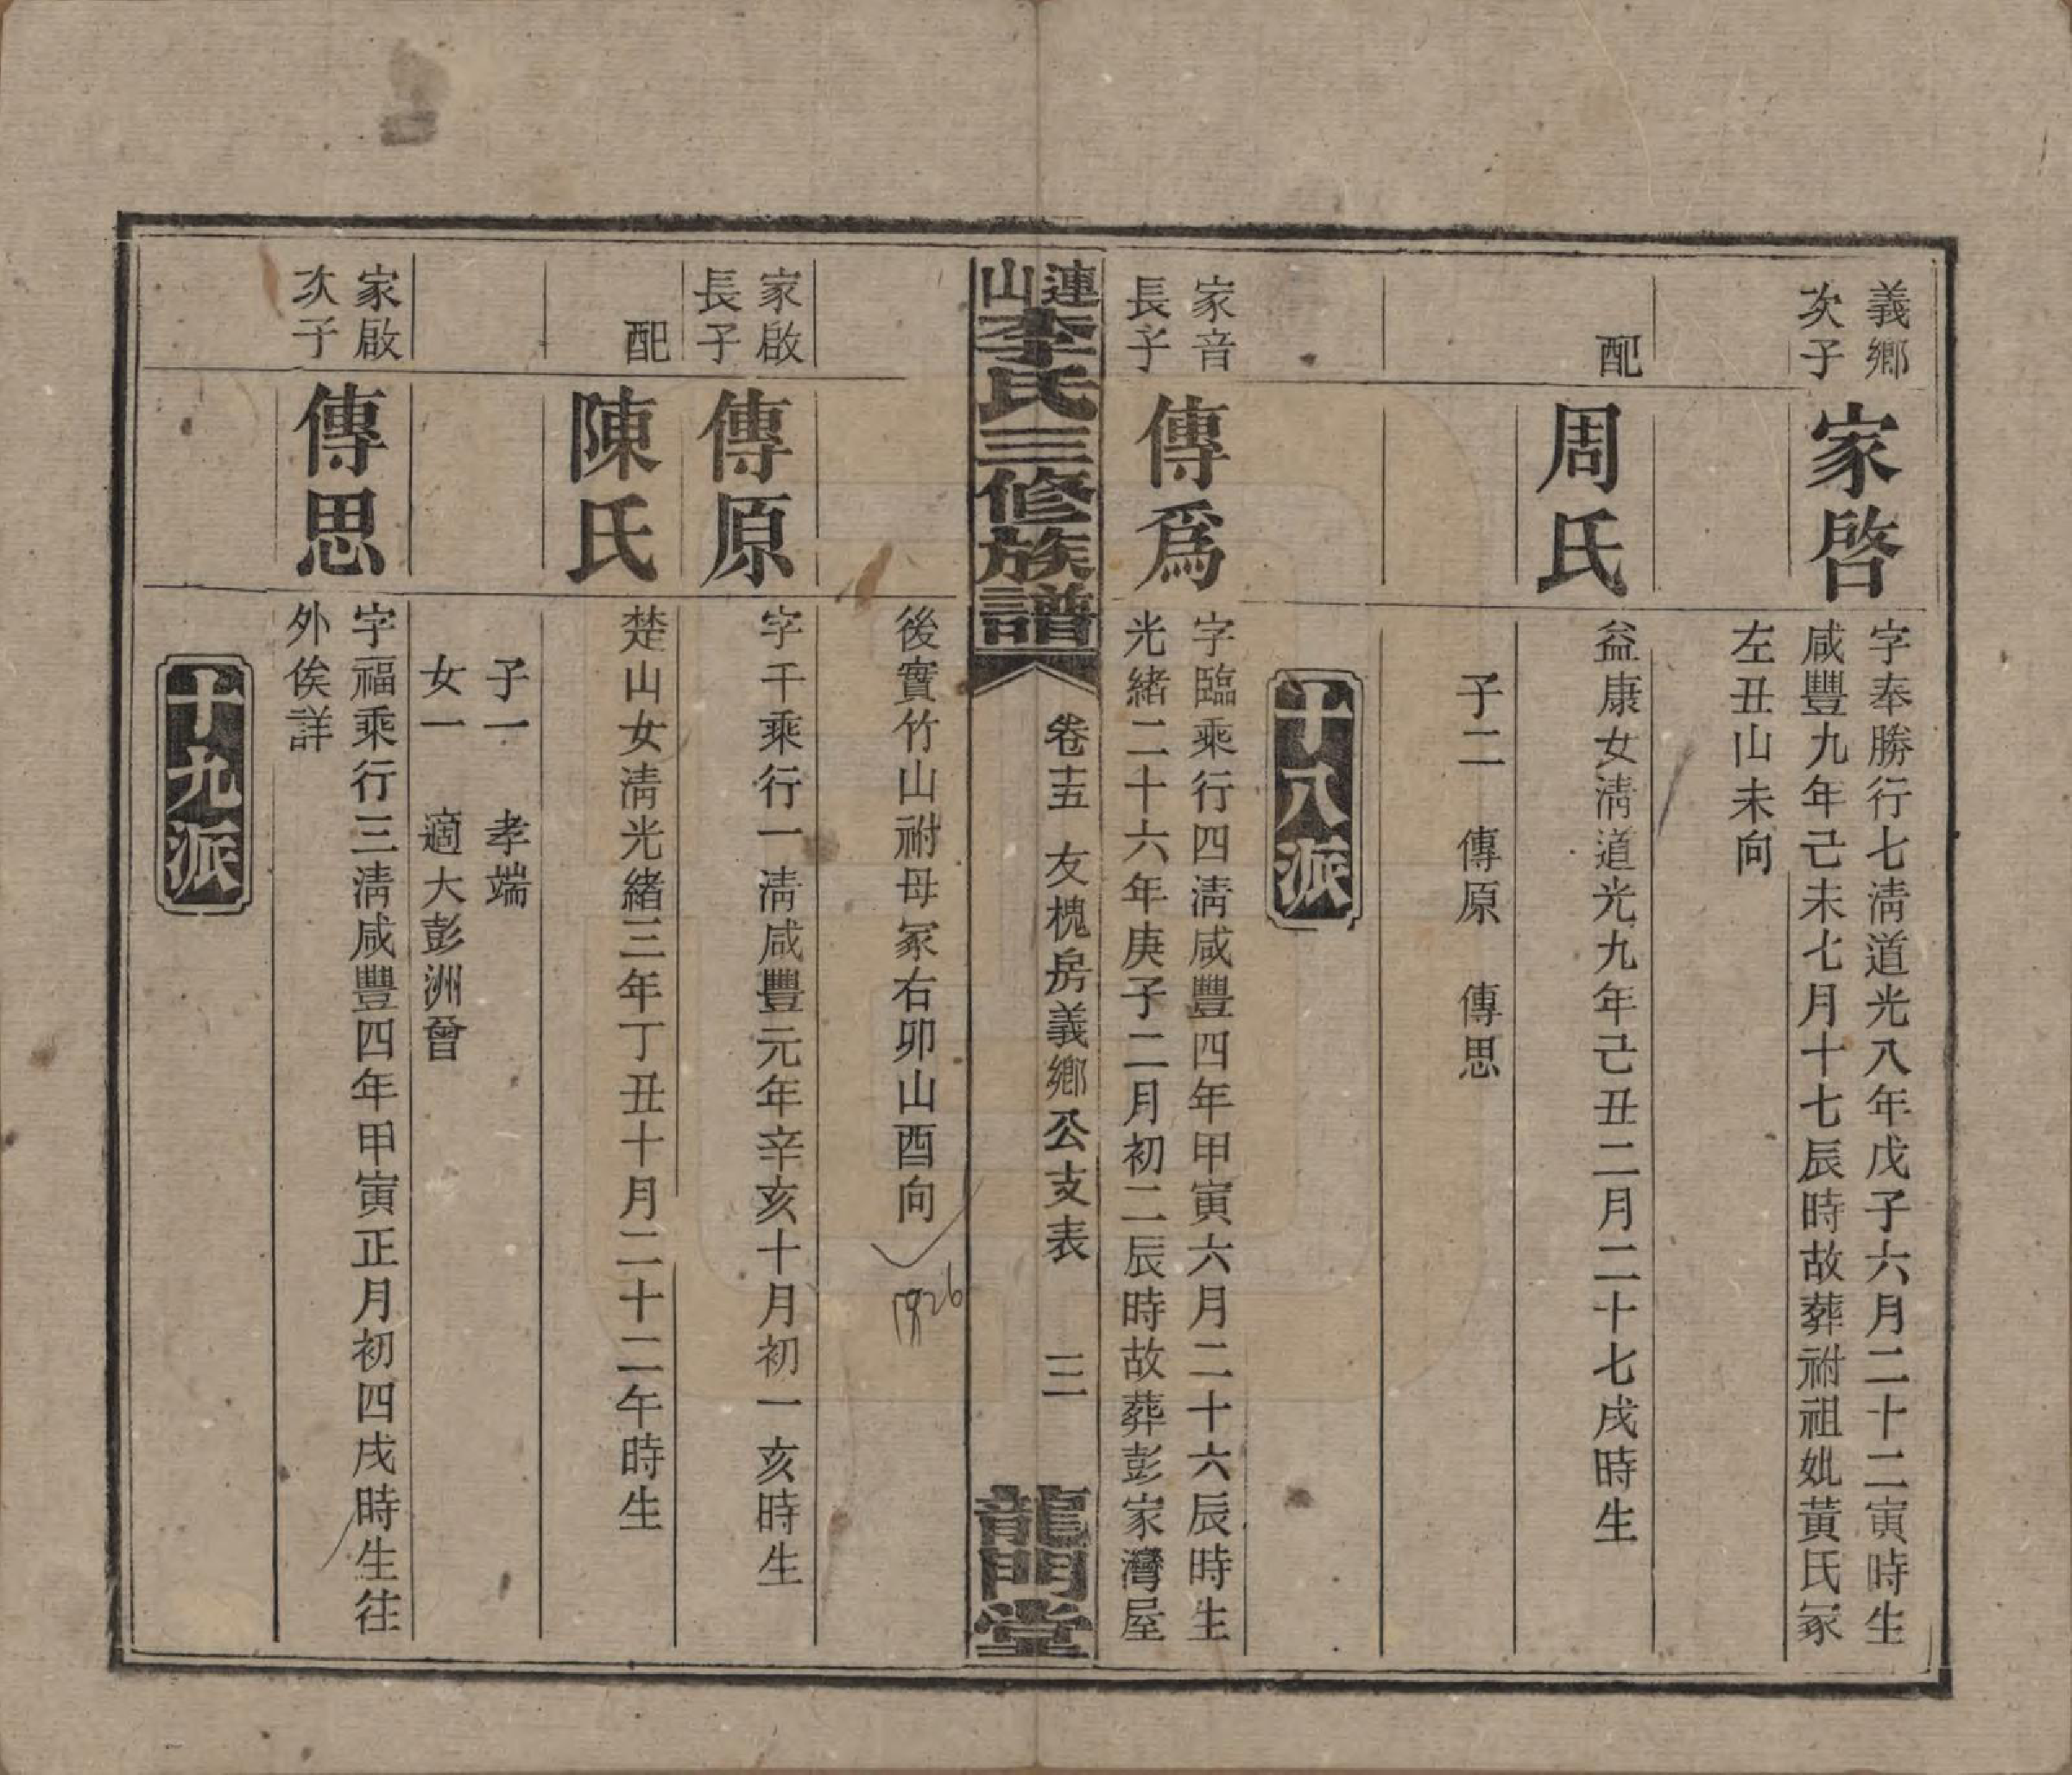 義鄉
次子
家啓
字奉勝行七淸道光八年戊子六月二十二寅時生
咸豐九年己未七月十七辰時故葬祔祖妣黃氏冢
左丑山未向
配
周氏
益康女淸道光九年己丑二月二十七戌時生
子二 傳原 傳思
十八派
家音
長子
傳爲
字臨乘行四淸咸豐四年甲寅六月二十六辰時生
光緒二十六年庚子二月初二辰時故葬彭家灣屋
連山李氏三修族譜
卷十五 友槐房義鄉公支表 三
龍門堂
後實竹山祔母冢右卯山酉向
1926
家啟
長子
傳原
字千乘行一淸咸豐元年辛亥十月初一亥時生
配
陳氏
楚山女淸光緒三年丁丑十月二十二午時生
子一 孝端
女一 適大彭洲曾
家啟
次子
傳思
字福乘行三淸咸豐四年甲寅正月初四戌時生往
外俟詳
十九派